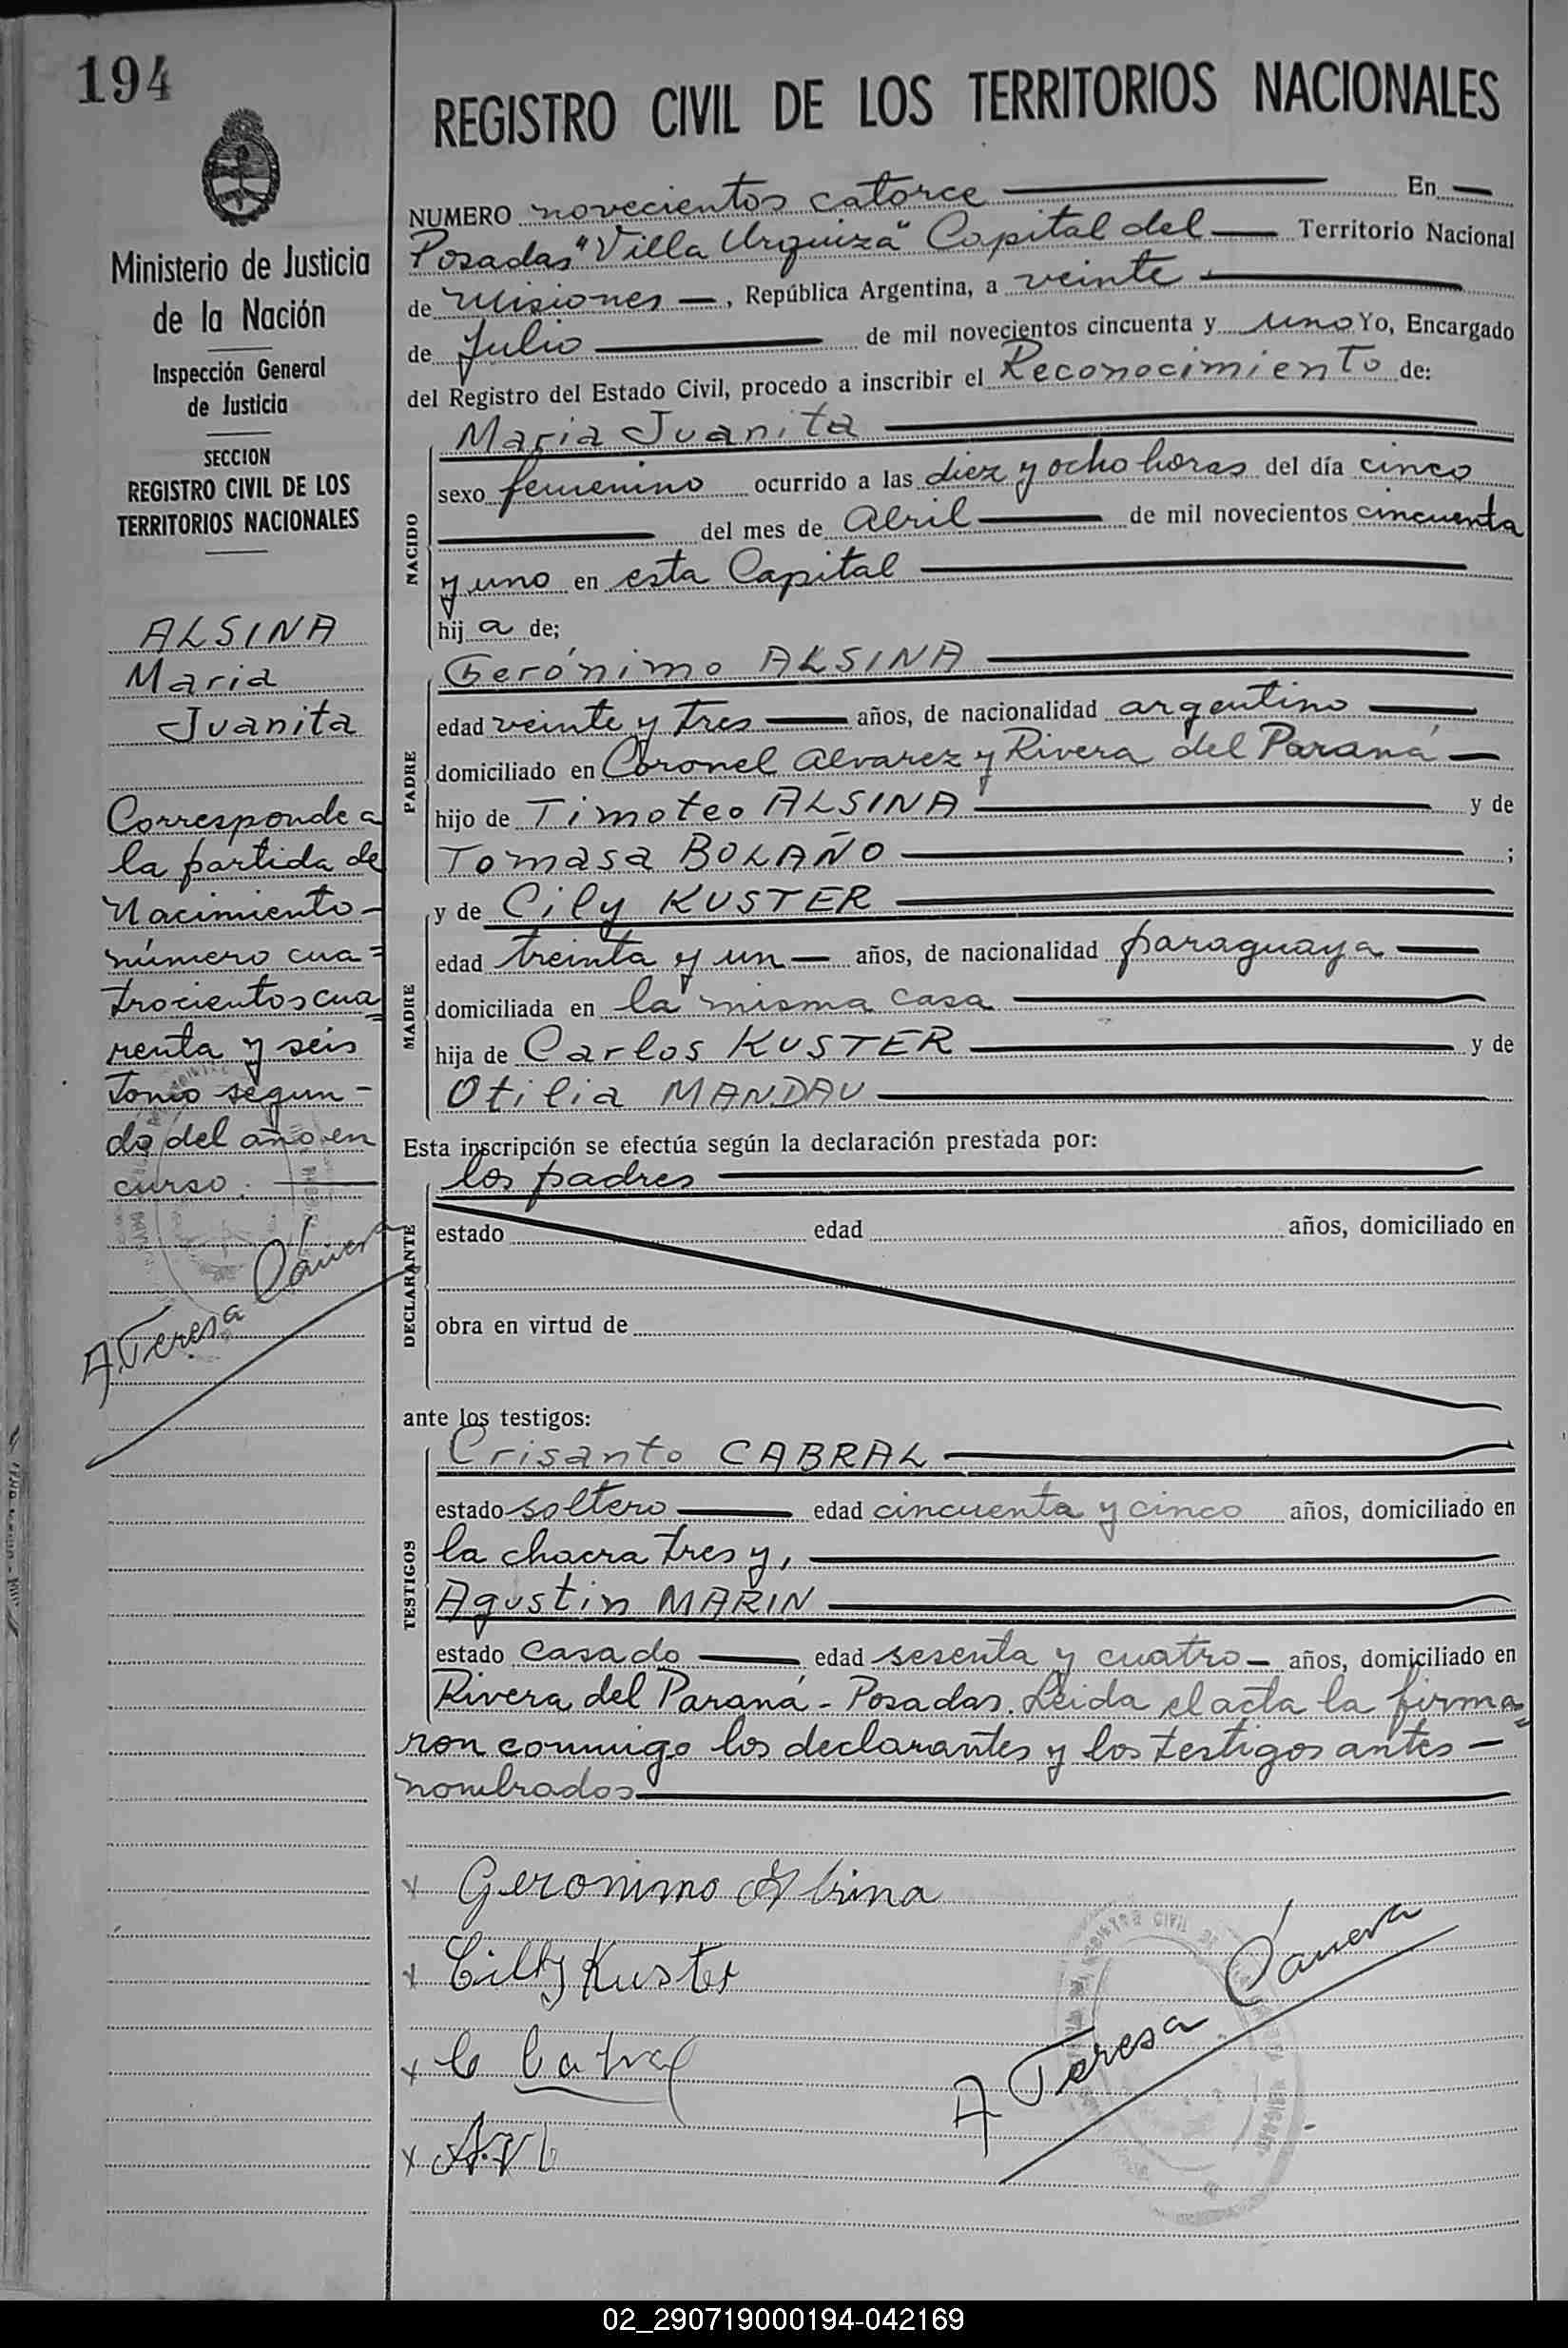 194
Ministerio de Justicia
de la Nación
Inspección General
de Justicia
SECCION
REGISTRO CIVIL DE LOS
TERRITORIOS NACIONALES
ALSINA
Maria
Juanita
Corresponde a
la partida de
Nacimiento-
número cua=
trocientos cua=
renta y seis
Tomo segun-
do del año en
curso.
A Teresa
REGISTRO CIVIL DE LOS TERRITORIOS NACIONALES
NUMERO novecientos catorce En
Posadas "Villa Urquiza" Capital del Territorio Nacional
de Misiones, República Argentina, a veinte
de Julio de mil novecientos cincuenta y uno Yo, Encargado
del Registro del Estado Civil, procedo a inscribir el Reconocimiento de:
NACIDO
Maria Juanita
sexo femenino ocurrido a las diez y ocho horas del día cinco
del mes de Abril de mil novecientos cincuenta
y uno en esta Capital
hij a de;
PADRE
Gerónimo ALSINA
edad veinte y tres años, de nacionalidad argentino
domiciliado en Coronel Alvarez y Rivera del Paraná
hijo de Timoteo ALSINA y de
Tomasa BOLAÑO ;
MADRE
y de Cily KUSTER
edad treinta y un años, de nacionalidad paraguaya
domiciliada en la misma casa
hija de Carlos KUSTER y de
Otilia MANDAU
Esta inscripción se efectúa según la declaración prestada por:
DECLARANTE
los padres
estado edad años, domiciliado en
obra en virtud de
ante los testigos:
TESTIGOS
Crisanto CABRAL
estado soltero edad cincuenta y cinco años, domiciliado en
la chacra tres y,
Agustin MARIN
estado casado edad sesenta y cuatro años, domiciliado en
Rivera del Paraná - Posadas. Leida el acta la firma=
ron conmigo los declarantes y los testigos antes
nombrados
x Geronimo Alsina
x Cilly Kuster
x C Cabral
x
A Teresa
02_290719000194-042169